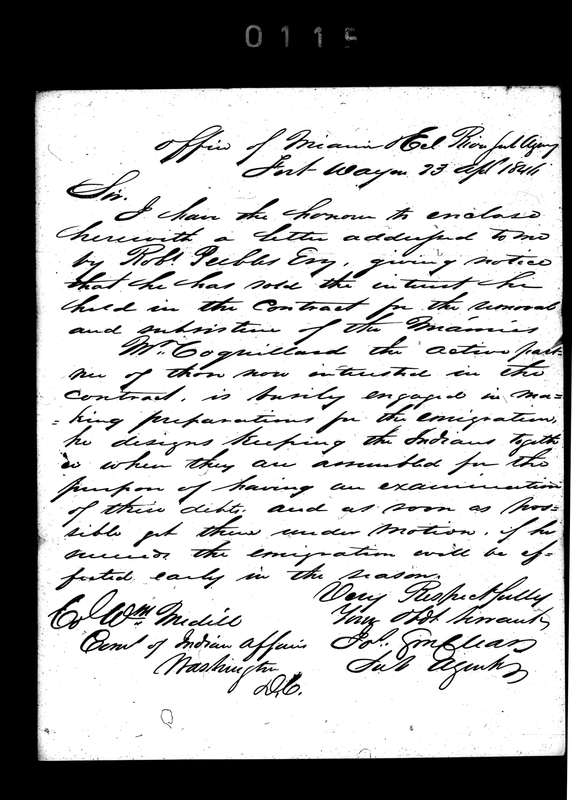 0115
Office of Miami & Eel River Sub Agency
Fort Wayne 23 Apl 1846
Sir.
I have the honour to enclose
herewith a letter addressed to me
by Robt Peebles Esq, giving notice
that he has sold the interest he
held in the Contract for the removal
and subsistence of the Miamies
Mr. Coquillard the active part-
ner of those now interested in the
contract, is busily engaged in ma=
=king preparations for the emigration,
he designs keeping the Indians togeth
er when they are assembled for the
purpose of having an examination
of their debts, and as soon as pos=
sible get them under motion, if he
succeeds the emigration will be ef-
fected early in the season.
Very Respectfully
Your Obdt Servant
Jos.
Sub Agent
Col Wm Medill
Coml of Indian Affairs
Washington
D.C.